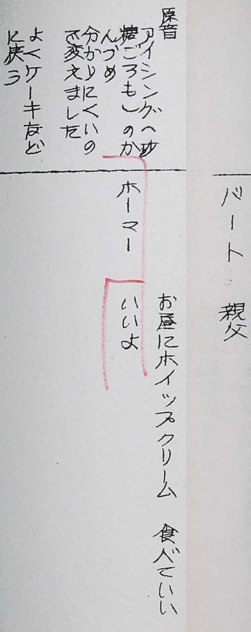 バート　親父
お昼にホイップクリーム　食べていい
ホーマー　いいよ
原音
アイシング(砂
糖ごろも)のか
んづめ
分かりにくいの
で変えました
よくケーキなど
に使う